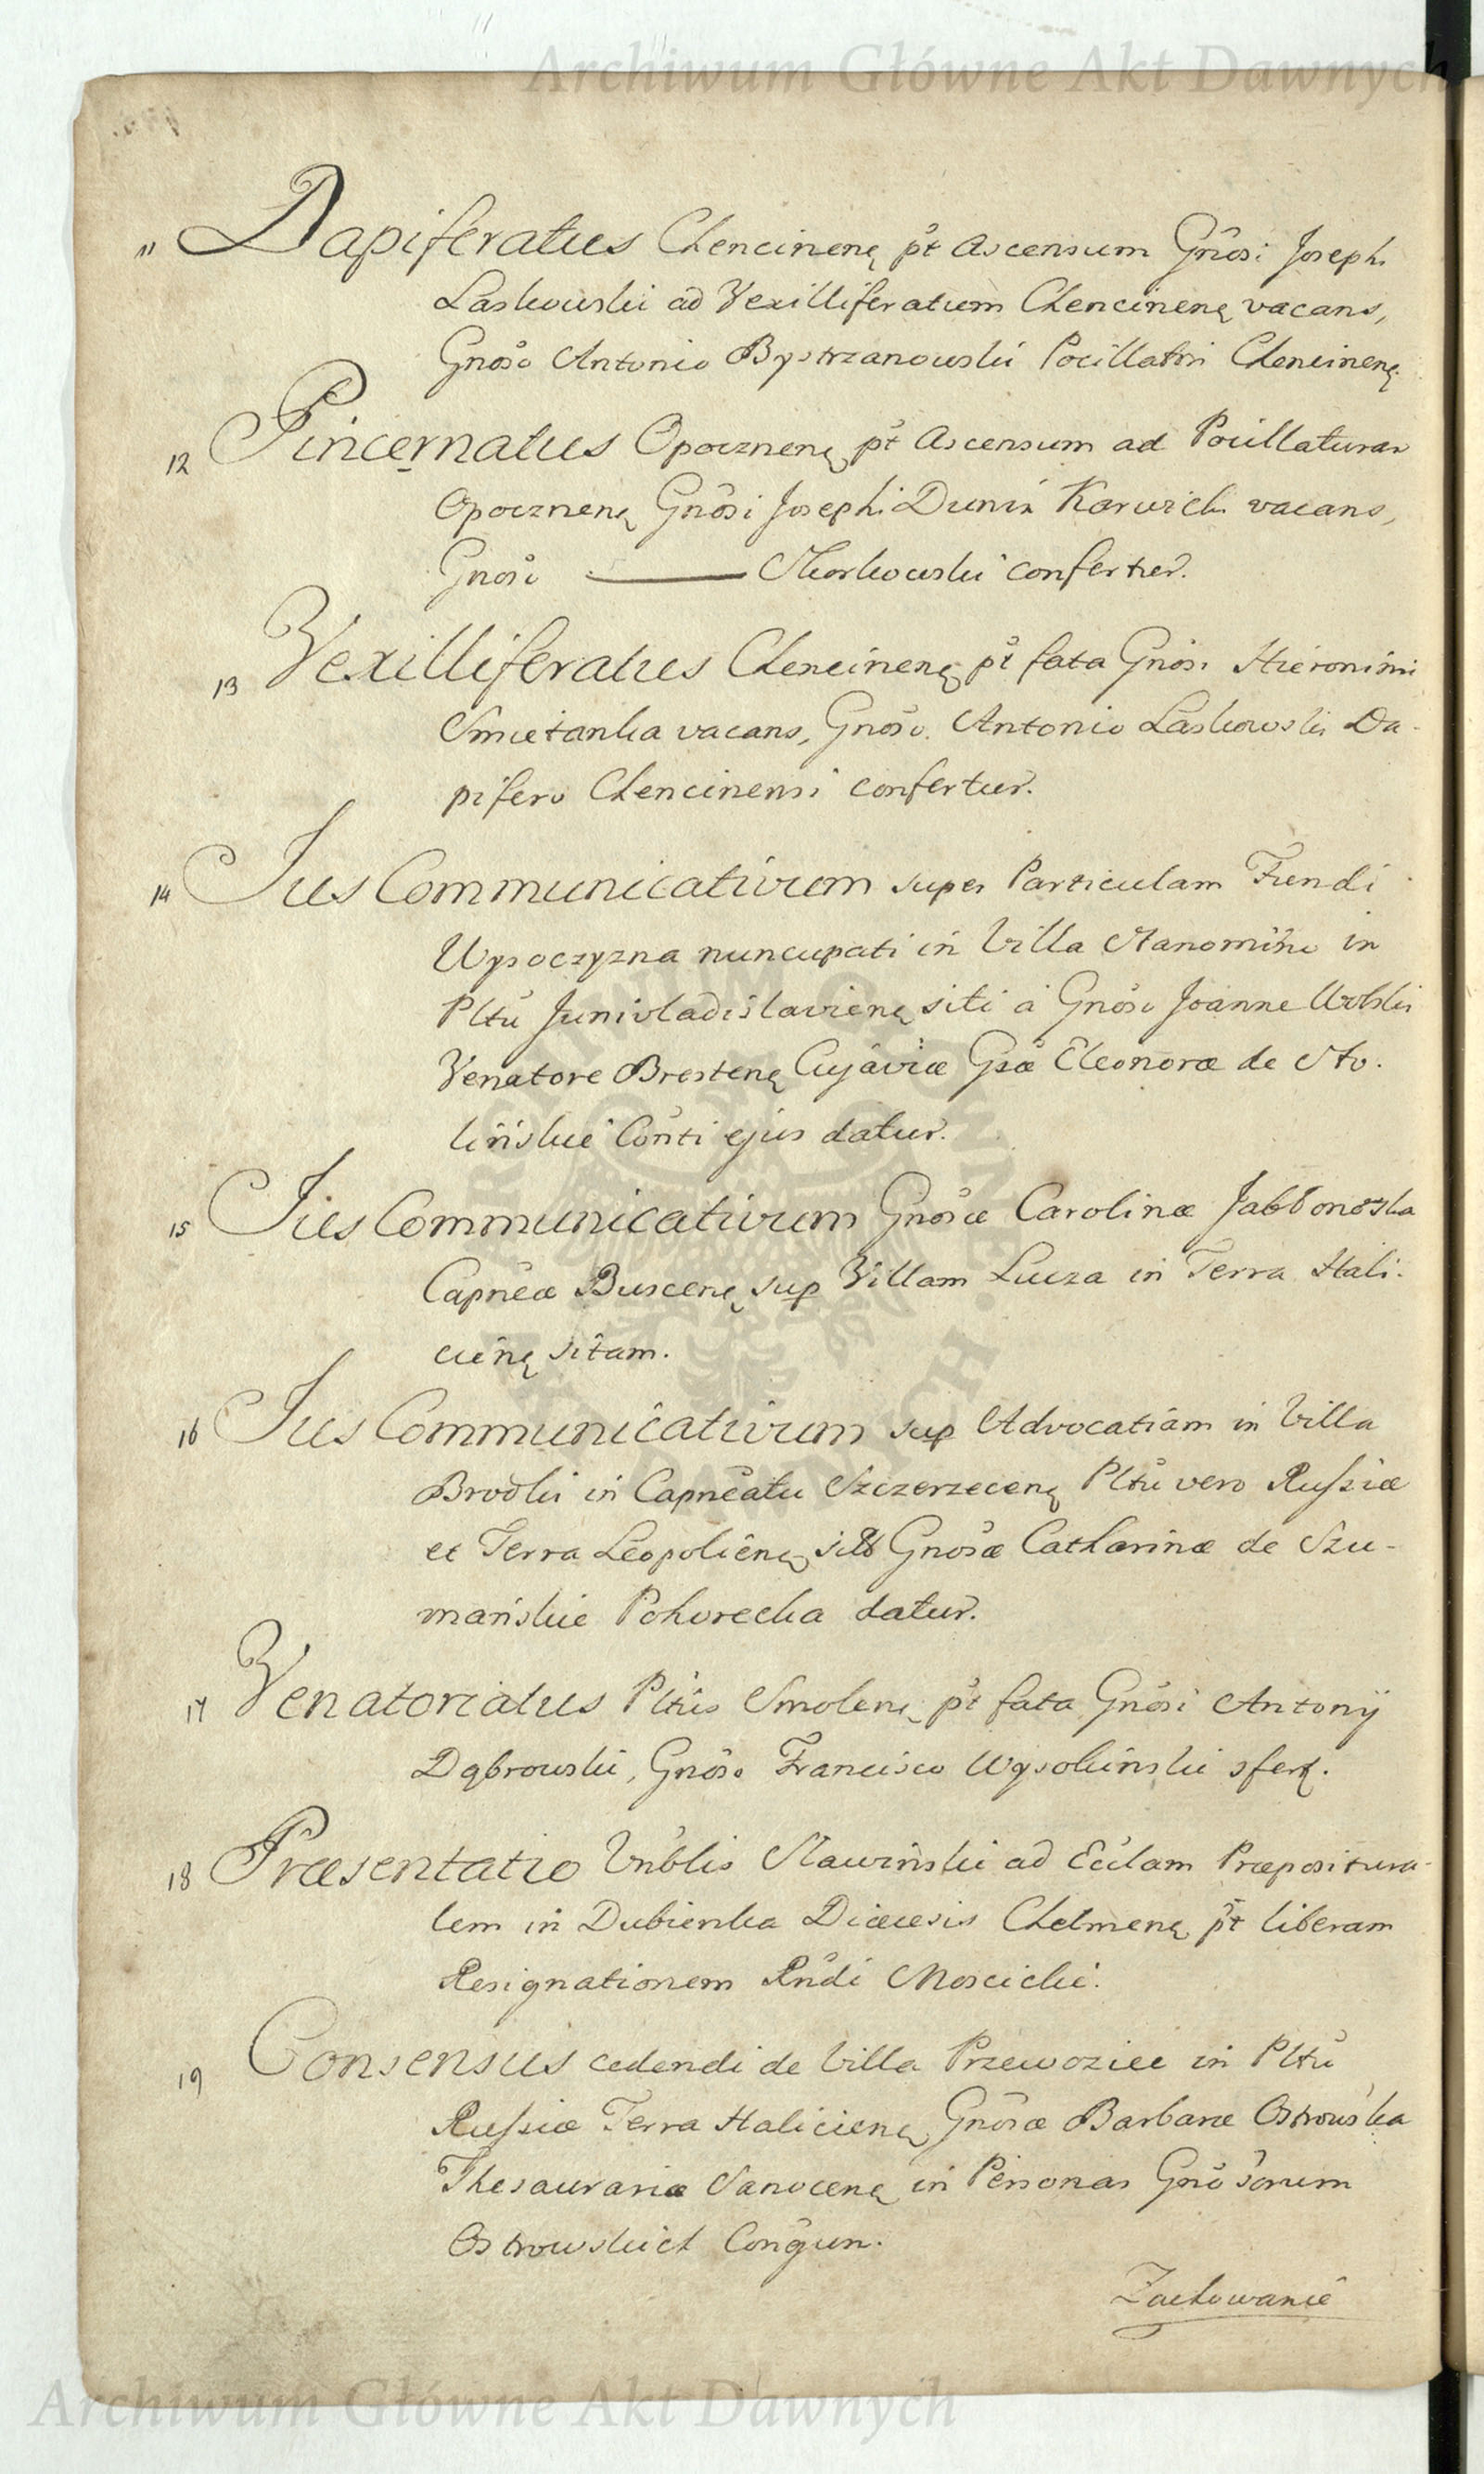 Archiwum Główne Akt Dawnych
11 Dapiferatus Chencinenę pt Ascensum Gnosi Joseph.
Laskowski ad Vexilliferatum Chencinenę vacans,
Gnoso Antonio Bystrzanowski Pocillatori Chencinenę
12 Pincernatus Opocznenę pt Ascensum ad Pocillaturam
Opocznenę Gnosi Josephi Dunin Karwicki vacans,
Gnoso ——— confertur.
13 Vexilliferatus Chencinenę pt fata Gnosi Hieronimi
Smietanka vacans, Gnoso. Antonio Laskowski Da-
pifero Chencinensi confertur.
14 Jus Communicativum super Particulam Fundi
Wysoczyzna nuncupati in Villa in
Pltu Junivladislavienę siti a Gnoso Joanne Wolski
Venatore Brestenę Cujaviæ Gsæ Eleonoræ de Sto-
lińskie Conti ejus datur.
15 Jus Communicativum Gnosæ Carolinæ Jabłonoska
Capneæ Buscenę sup Villam Lucza in Terra Hali-
cienę sitam.
16 Jus Communicativum sup Advocatiam in Villa
Brodki in Capneatu Szczerzecenę Pltu vero Russiæ
et Terra Leopolienę Gnosæ Catharinæ de Szu-
mańskie Pohorecka datur.
17 Venatoriatus Pltus Smolenę pt fata Gnosi Antonij
Dąbrowski, Gnoso Francisco Wysokiński sfert.
18 Præsentatio Vnblis Sławiński ad Ecclam Præpositura-
lem in Dubienka Diæcesis Chelmenę pt liberam
Resignationem Rndi Moscicki.
19 Consensus cedendi de Villa Przewoziec in Pltu
Russiæ Terra Halicienę Gnosæ Barbaræ Ostrowska
Thesaurariæ Sanocenę in Personas Gnosorum
Ostrowskich Congum.
Zachowanie
Archiwum Główne Akt Dawnych